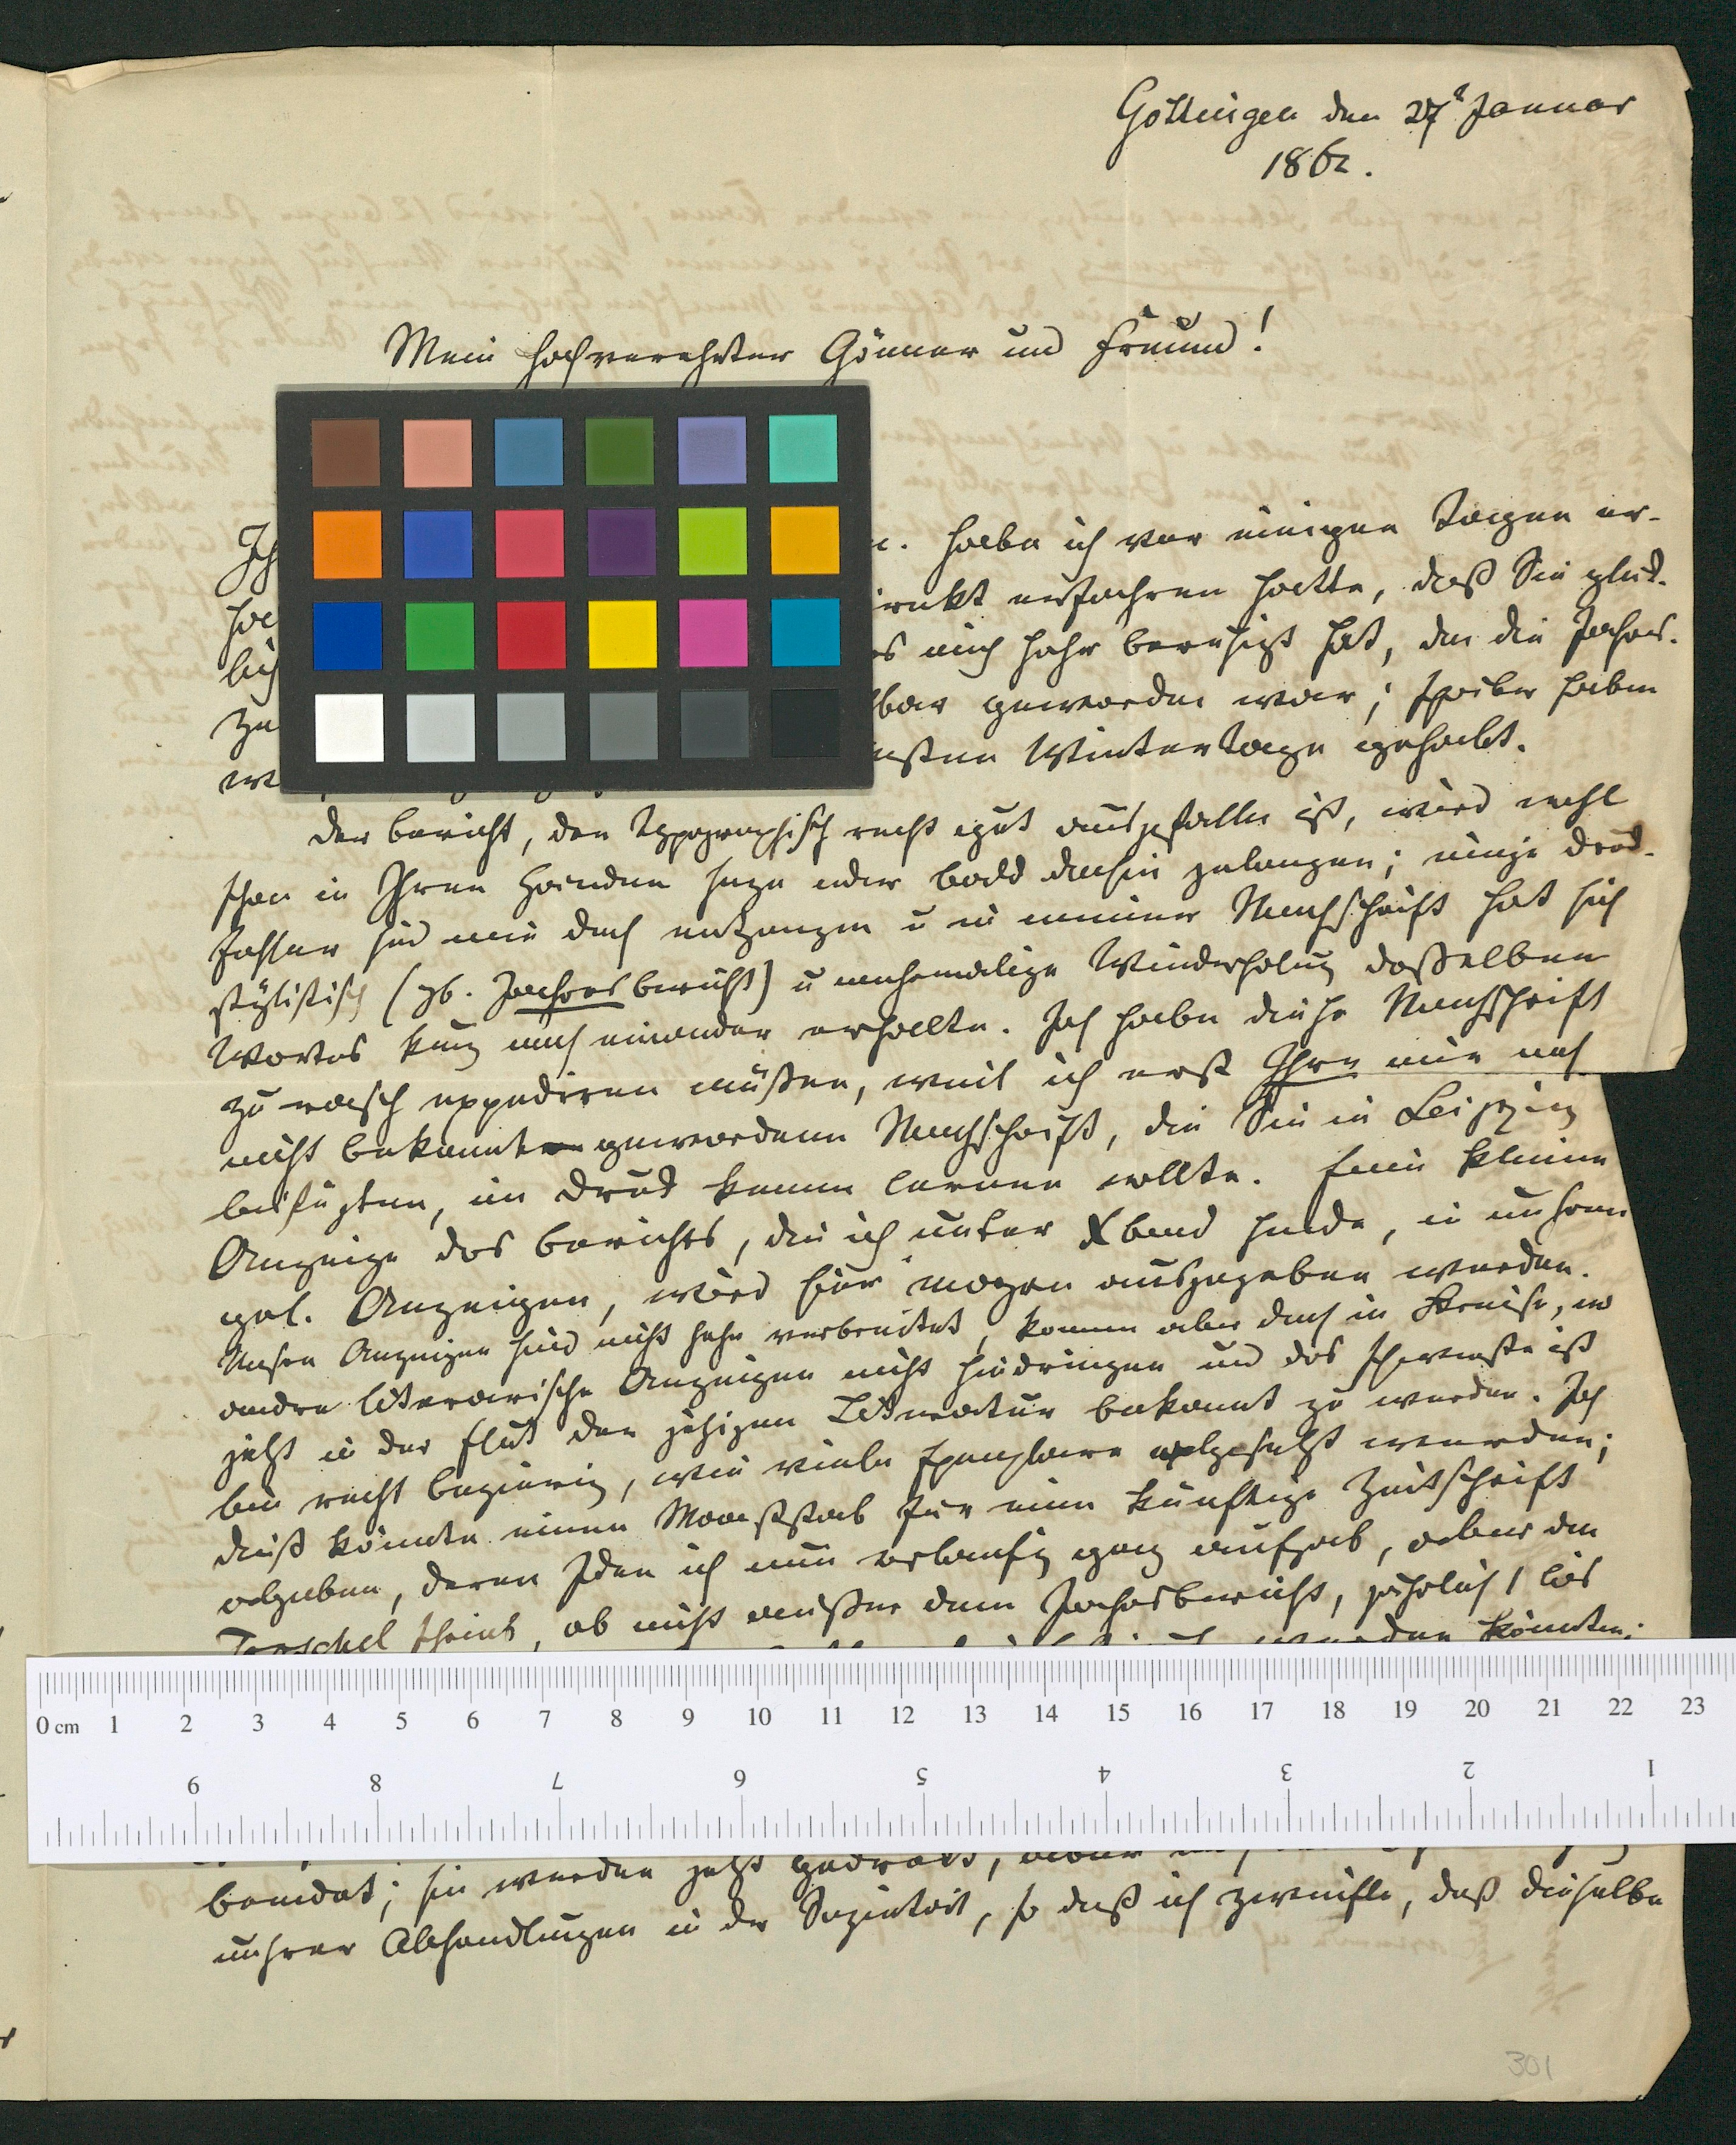 Göttingen den 27t Januar
1862.
Mein hochverehrter Gönner und Freund!
Ih n. habe ich vor einigen Tagen er-
ha direkt erfahren hatte, daß Sie glück-
lich es mich sehr beruhigt hat, da die Jahres-
ze bar geworden war; selber haben
wi nsten Wintertage gehabt.
Der Bericht, der typographisch recht gut ausgefallen ist, wird wohl
schon in Ihren Händen seyn oder bald dahin gelangen; einige Druck-
fehler sind mir doch entgangen u in meiner Nachschrift hat sich
stylistisch (zb. Jahresbericht) u mehrmalige Wiederholung desselben
Wortes kurz nach einander erhalten. Ich habe diese Nachschrift
zu rasch expediren müßen, weil ich erst Ihre mir noch
nicht bekannt gewordene Nachschrift, die Sie in Leipzig
beifügten, im Druck kennen lernen wollte. Eine kleine
Anzeige des Berichts, die ich unter Xband sende, in unseren
gel. Anzeigen, wird hier morgen ausgegeben werden.
Unsre Anzeigen sind nicht sehr verbreitet, kommen aber doch in Kreise, wo
andre literarische Anzeigen nicht hindringen und das schwerste ist
jetzt in der Flut der jetzigen Literatur bekannt zu werden. Ich
bin recht begierig, wie viele Exemplare abgesetzt werden;
dieß könnte einen Maaßstab für eine künftige Zeitschrift
abgeben, deren Idee ich nun vorläufig ganz aufgab, aber den
Troschel schrieb, ob nicht außer dem Jahresbericht, jährlich 1 bis
werden könnten;
beendet; sie werden jetzt gedruckt, aber
unsrer Abhandlungen in der Sozietät, so daß ich zweifle, daß dieselbe
301
0 cm 1 2 3 4 5 6 7 8 9 10 11 12 13 14 15 16 17 18 19 20 21 22 23
9 8 7 6 5 4 3 2 1